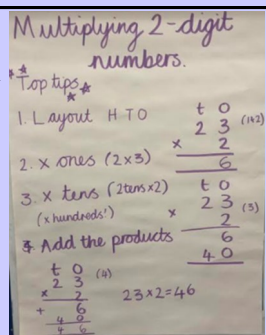 Multiplying 2-digit
numbers.
Top tips
1. Layout H T O
t o
2 3 (1+2)
x 2
6
2. x ones (2x3)
3. x tens (2tens x2)
(x hundreds!)
t o
2 3 (3)
x 2
6
4 0
4 Add the products
t o (4)
2 3
x 2
+ 6
4 0
4 6
23x2=46